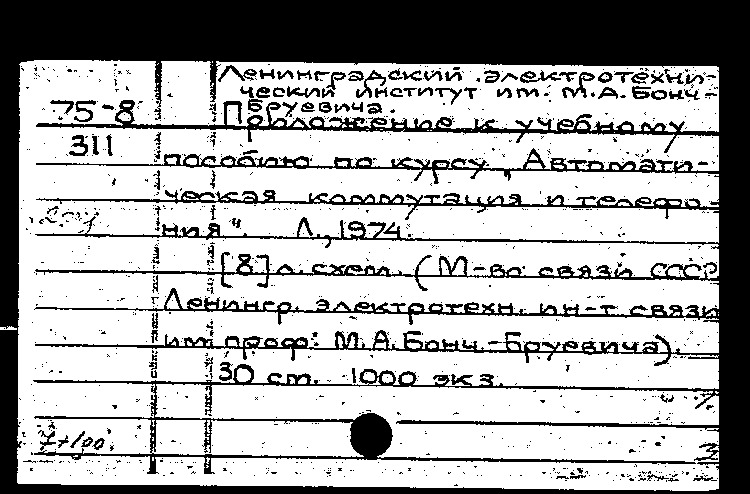 Ленинградский электротехни-
ческий институт им. М.А. Бонч-
Бруевича.
75-8
Приложение к учебному
311
пособию по курсу „Автомати-
ческая коммутация и телефо-
ния". Л., 1974.
[8] л. схем. (М-во связи СССР
Ленингр. электротехн. ин-т связи
им. проф. М.А. Бонч-Бруевича).
30 см. 1000 экз.